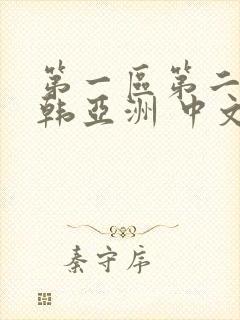 第一區第二
韩亞洲 中文
秦守序